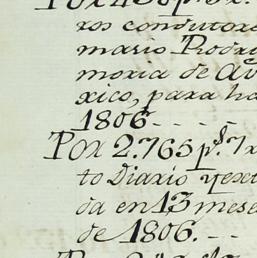 ros conductore
mario Rodri
moria de Av
xico, para ha
1806. - - -
Por 2.765 p.s 7 r
to Diario y ext
da en 13 mese
de 1806. - -